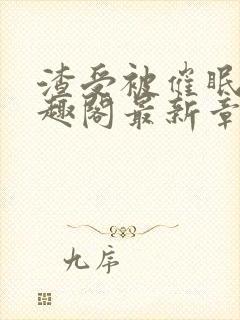 渣受被催眠
趣阁最新章
九序